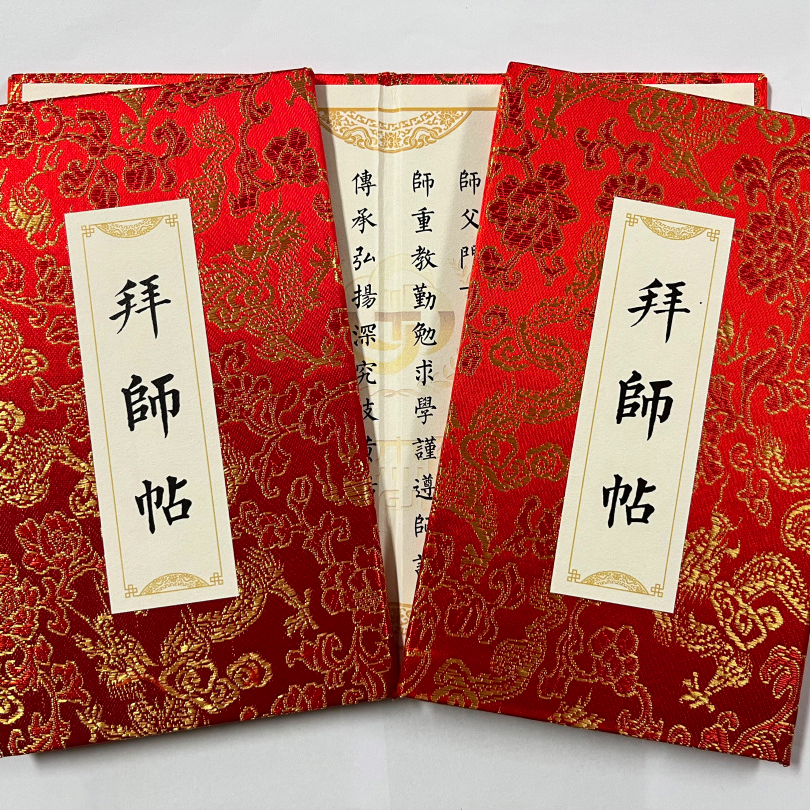 拜師帖
師父門
師重教勤勉求學謹遵師
傳承弘揚深究
拜師帖